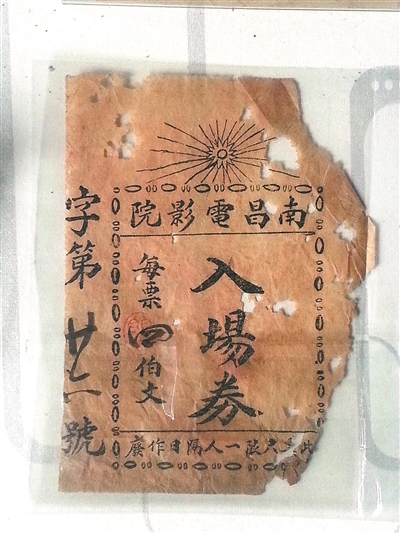 南昌電影院
入場券
每票四伯文
字第廿號
此只限一人隔日作廢